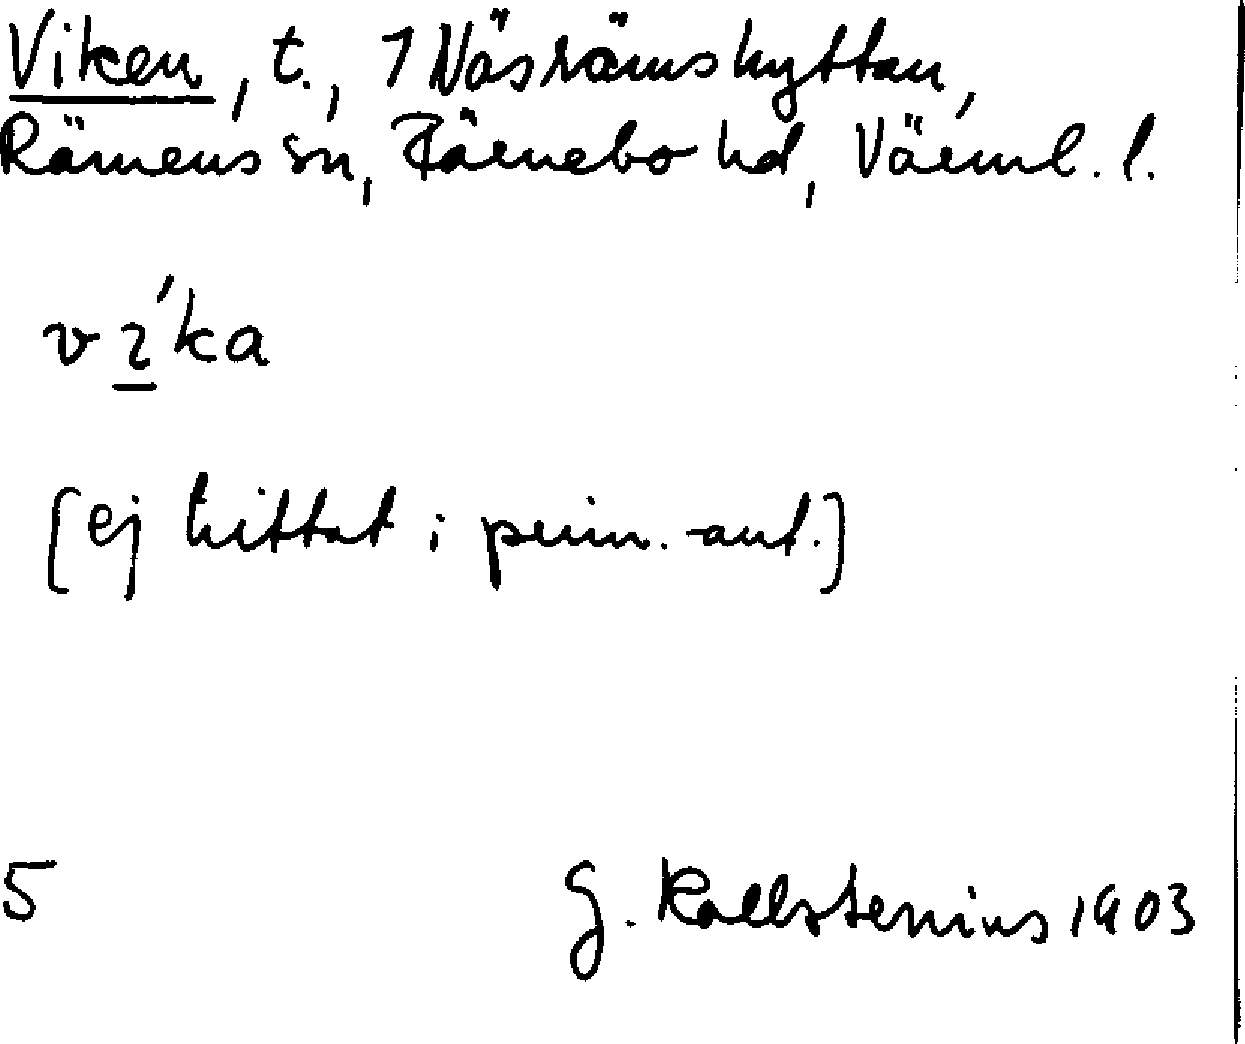 Viken, t., 1 Näsrämshyttan,
Rämens sn, Färnebo hd, Värml. l.
vi̲'ka
[ej hittat i prim.-ant.]
5
G. Kallstenius 1903